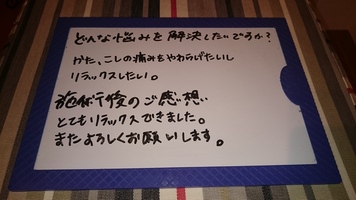 どんな悩みを解決したいですか?
かた、こしの痛みをやわらげたいし
リラックスしたい。
施術後のご感想
とてもリラックスできました。
またよろしくお願いします。